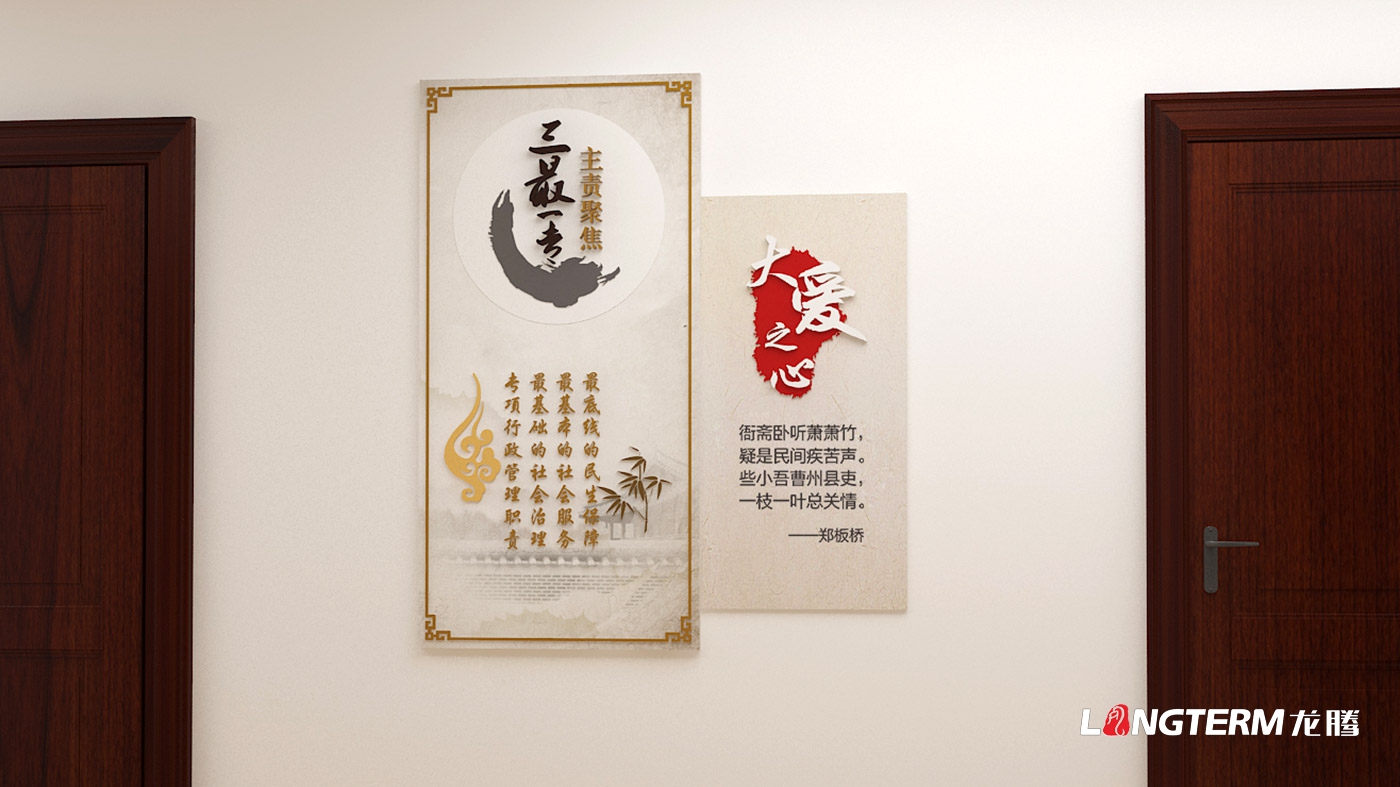 三最一专
主责聚焦
最底线的民生保障
最基本的社会服务
最基础的社会治理
专项行政管理职责
大爱之心
衙斋卧听萧萧竹，
疑是民间疾苦声。
些小吾曹州县吏，
一枝一叶总关情。
——郑板桥
LONGTERM龙腾